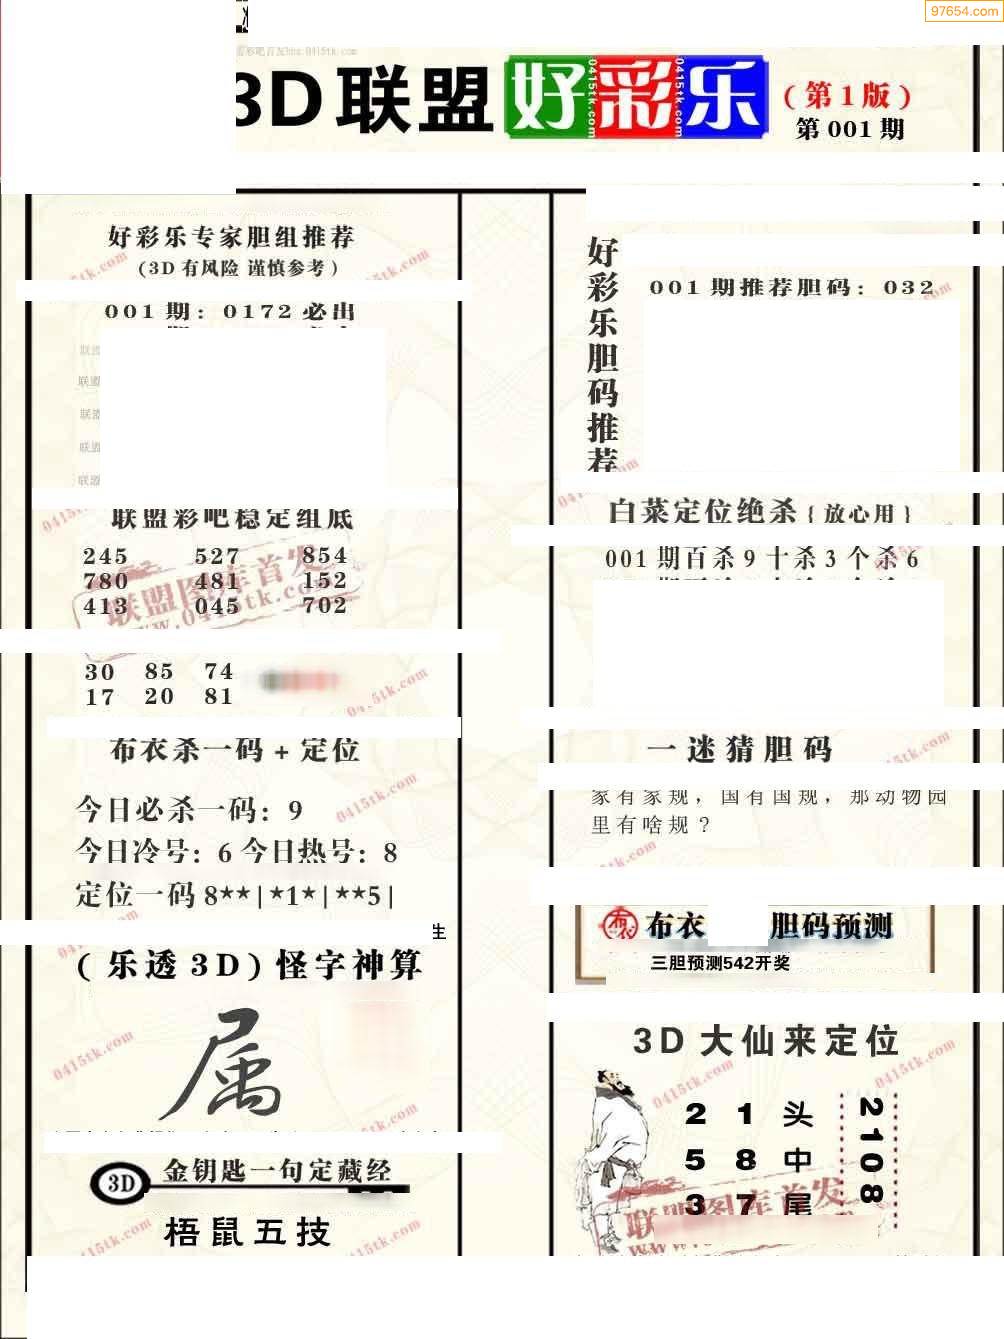 97654.com
3D联盟好彩乐(第1版)
第001期
好彩乐专家胆组推荐
(3D有风险 谨慎参考)
001期:0172必出
联盟
联盟
联盟
联盟
联盟彩吧稳定组底
245 527 854
780 481 152
413 045 702
联盟图库首发
www.0415tk.com
30 85 74
17 20 81
布衣杀一码+定位
今日必杀一码:9
今日冷号:6今日热号:8
定位一码8**|*1*|**5|
生
(乐透3D)怪字神算
属
3D 金钥匙一句定藏经
梧鼠五技
好彩乐胆码推荐
001期推荐胆码:032
白菜定位绝杀{放心用}
001期百杀9十杀3个杀6
一迷猜胆码
家有家规,国有国规,那动物园
里有啥规?
布衣 布衣 胆码预测
三胆预测542开奖
3D大仙来定位
2 1 头
5 8 中
3 7 尾
2108
联盟图库首发
0415tk.com